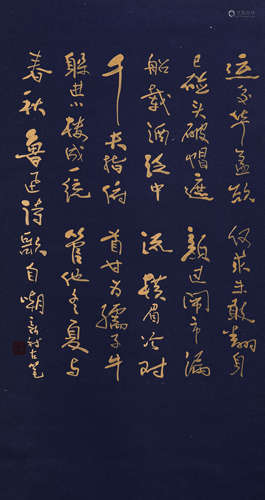 运交华盖欲何求未敢翻身
已碰头破帽遮颜过闹市漏
船载酒泛中流横眉冷对
千夫指俯首甘为孺子牛
躲进小楼成一统管他冬夏与
春秋鲁迅詩歌自嘲